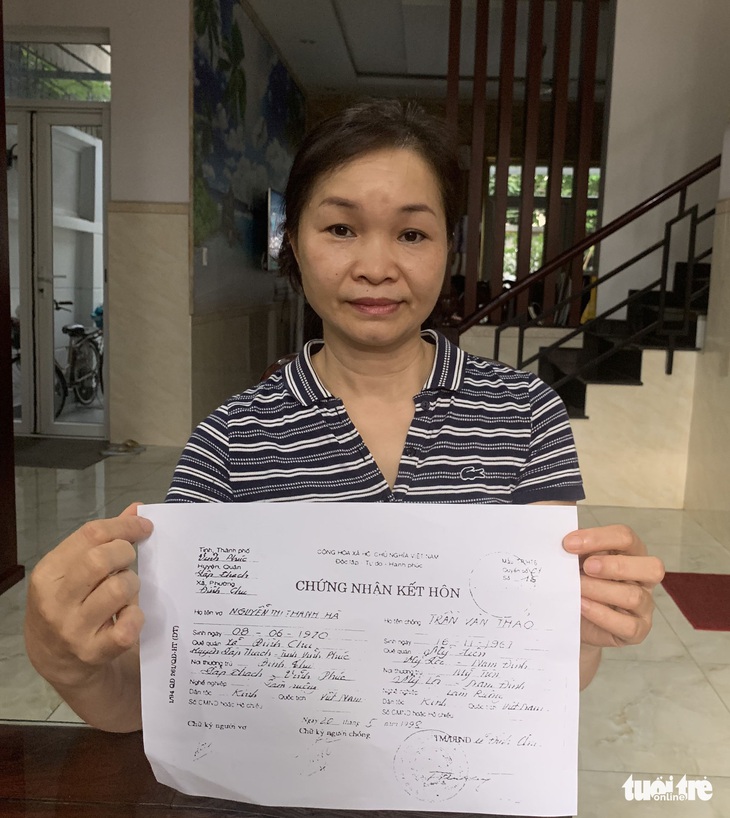 Tỉnh, Thành phố
Vĩnh Phúc
Huyện, Quận
Lập Thạch
Xã, Phường
Đình Chu
CỘNG HÒA XÃ HỘI CHỦ NGHĨA VIỆT NAM
Độc lập - Tự do - Hạnh phúc
Quyển số
Số
CHỨNG NHẬN KẾT HÔN
Họ tên vợ NGUYỄN THỊ THANH HÀ
Sinh ngày 08 - 06 - 1970
Quê quán Xã Đình Chu
Huyện Lập Thạch - Tỉnh Vĩnh Phúc
Nơi thường trú Đình Chu
Lập Thạch - Vĩnh Phúc
Nghề nghiệp Làm ruộng
Dân tộc Kinh Quốc tịch Việt Nam
Số CMND hoặc Hộ chiếu
Họ tên chồng TRẦN VĂN THAO
Sinh ngày 16 - 11 -
Quê quán Mỹ Tiến
Mỹ Lộc - Nam Định
Nơi thường trú Mỹ Tiến
Mỹ Lộc - Nam Định
Nghề nghiệp Làm ruộng
Dân tộc Kinh Quốc tịch Việt Nam
Số CMND hoặc Hộ chiếu
Ngày 20 tháng 5 năm
Chữ ký người vợ
Chữ ký người chồng
TM/UBND xã Đình Chu
tuổi trẻ
online